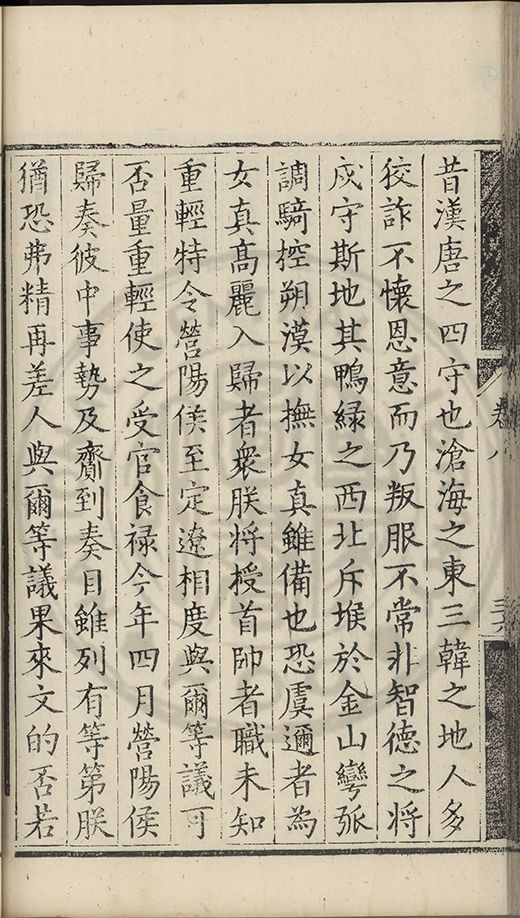 昔漢唐之四守也滄海之東三韓之地人多
狡詐不懷恩意而乃叛服不常非智德之將
戍守斯地其鴨緑之西北斥堠於金山彎弧
調騎控朔漠以撫女真雖備也恐虞邇者為
女真髙麗入歸者衆朕將授首帥者職未知
重輕特令營陽侯至定遼相度與爾等議可
否量重輕使之受官食禄今年四月營陽侯
歸奏彼中事勢及齎到奏目雖列有等第朕
猶恐弗精再差人與爾等議果來文的否若
卷八